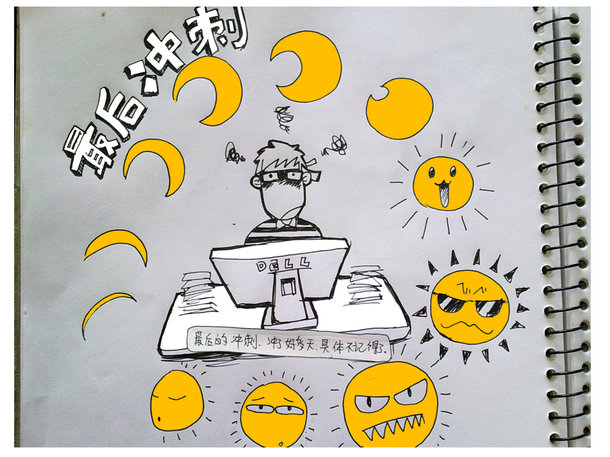 最后冲刺
DELL
最后的冲刺，冲了好多天，具体不记得了。